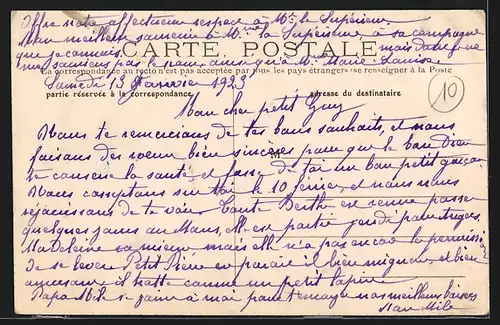 Offre notre affectueux respect à Mr le Supérieur.
mon meilleur souvenir à Mme la Supérieure, à sa compagne
que je connais. mais dont je ne
CARTE POSTALE
me souviens pas le nom, ainsi qu'à Mr Marie-Louise.
La correspondance au recto n'est pas acceptée par tous les pays étrangers se renseigner à la Poste
Samedi 13 Janvier 1923
partie réservée à la correspondance adresse du destinataire
10
Mon cher petit Guy
Nous te remercions de tes bons souhaits, et nous
M
faisons des voeux bien sincères pour que le bon Dieu
te conserve la santé, et fasse de toi un bon petit garçon.
Nous comptons sur toi le 10 février, et nous nous
réjouissons de te voir. Tante Berthe est venue passer
quelques jours au Mans, elle est partie jeudi pour
Madeleine va mieux mais elle n'a pas encore la permission
de se lever. Petit Pierre en parait-il bien mignon, et bien
amusant, il trotte comme un petit lapin.
Papa Mile se joint à moi pour t'envoyer nos meilleurs baisers
Man Mile